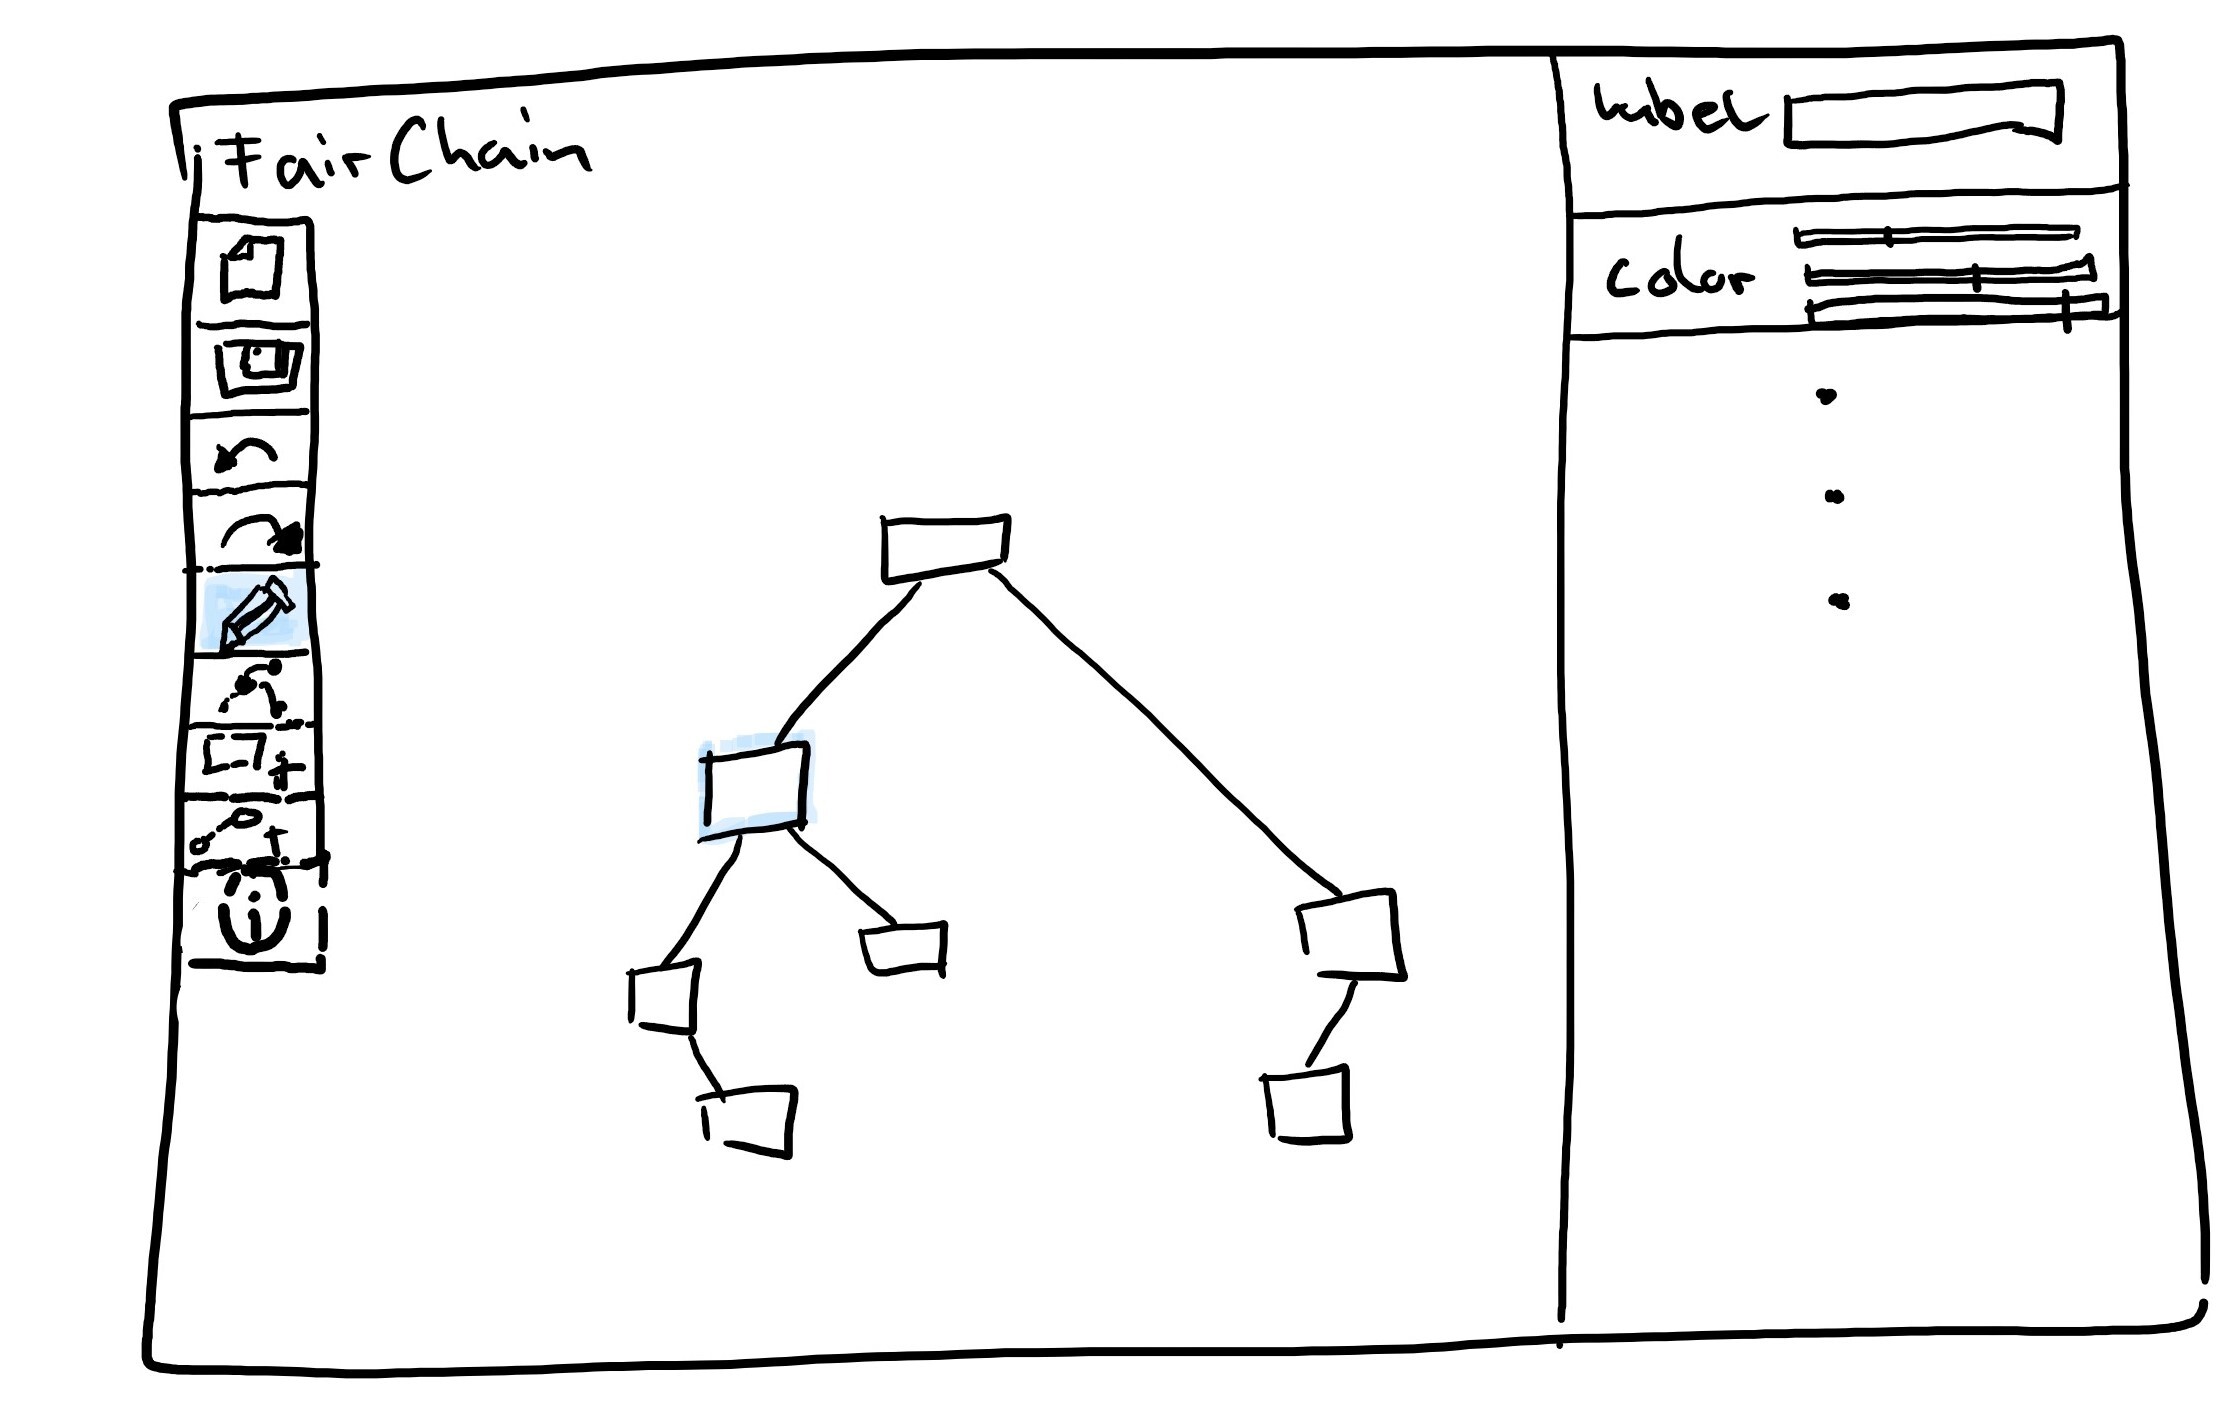 FairChain
label
color
i